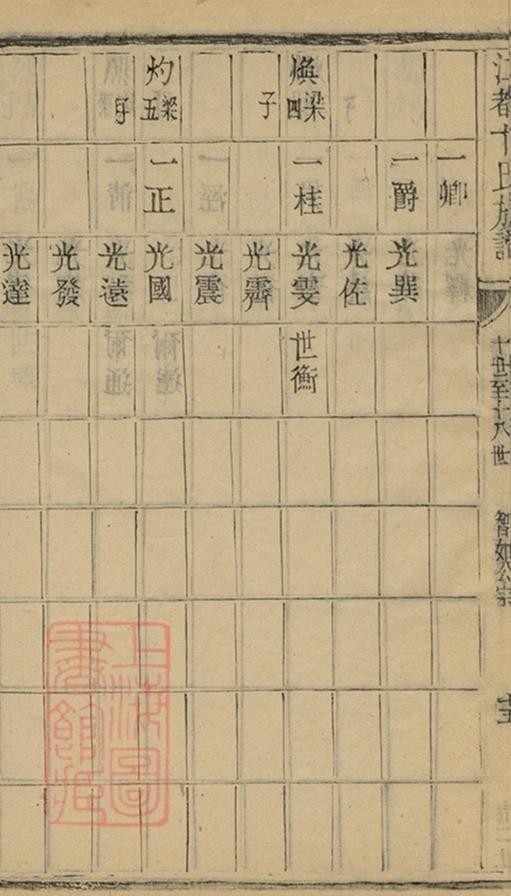 江都卞氏族譜
十世至十八世
智如公宗
一卿
一爵
光巽
光佐
煥梁四子
一桂
光雯
世衡
光霽
光震
灼梁五子
一正
光國
光遠
光發
光達
上海圖書館藏